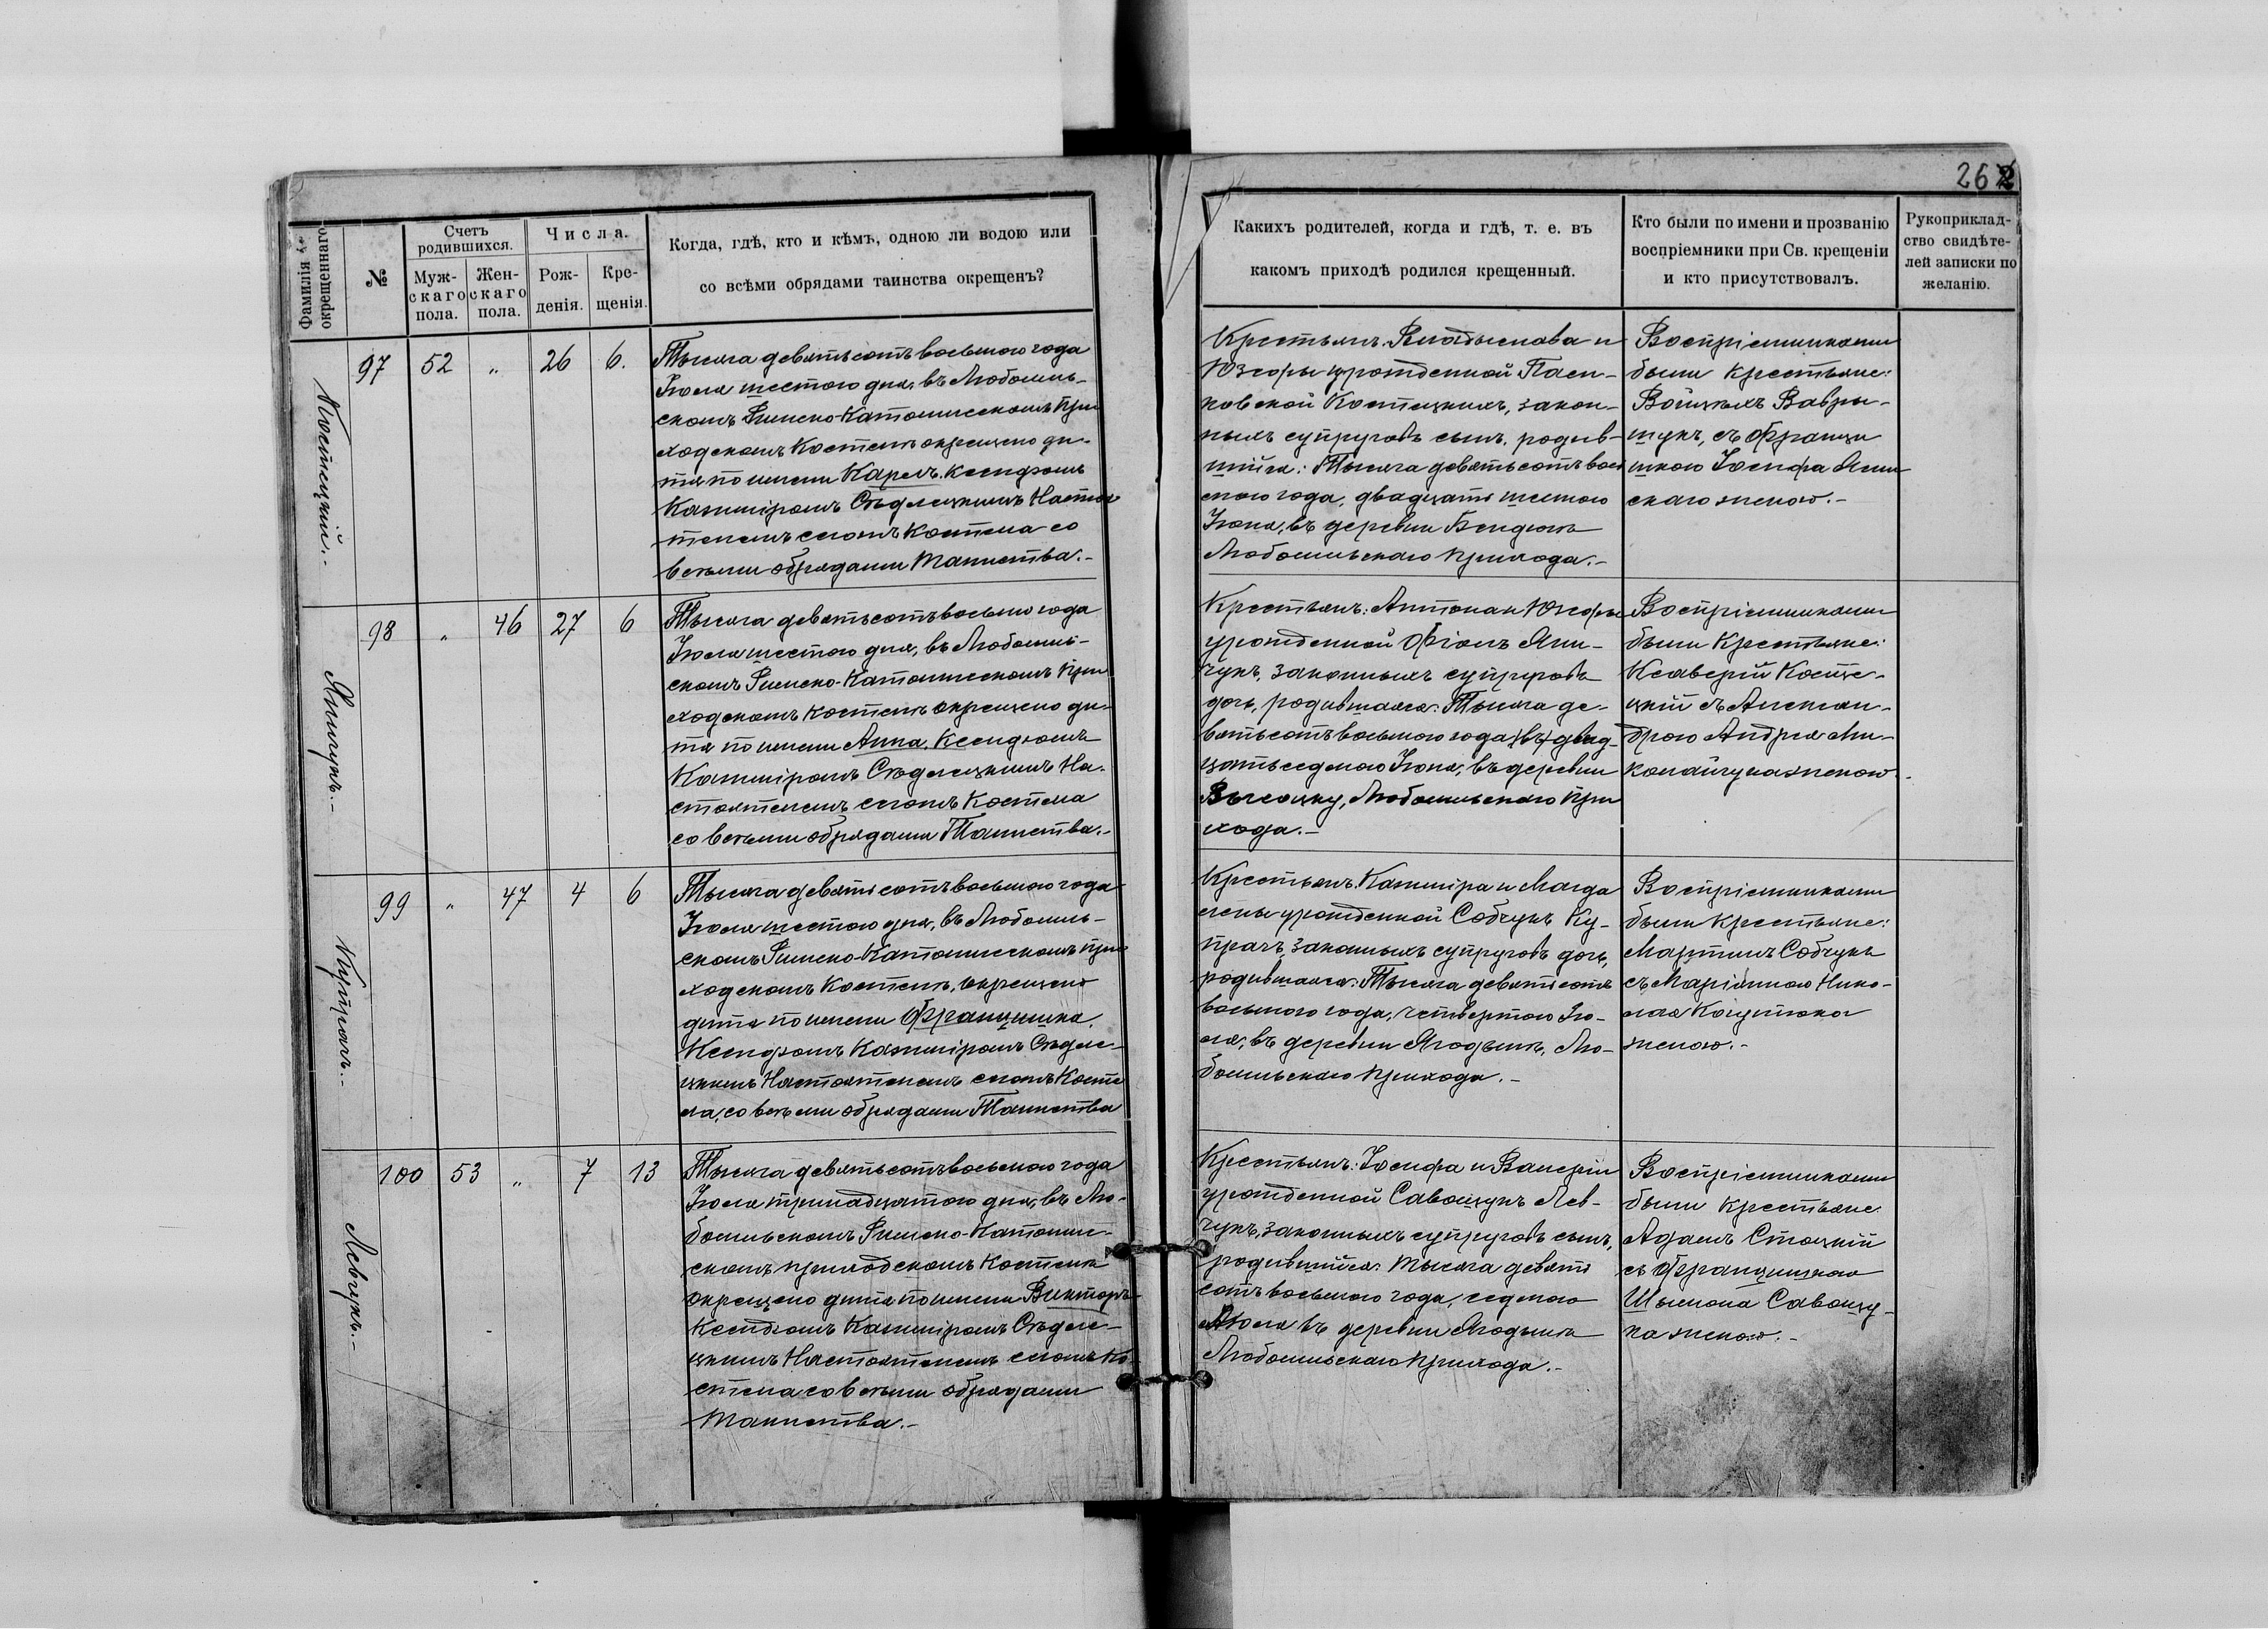 262
Фамилія окрещеннаго
№
Счетъ родившихся.
Муж-
скаго
пола.
Жен-
скаго
пола.
Числа.
Рож-
денія.
Кре-
щенія.
Когда, гдѣ, кто и кѣмъ, одною ли водою или
со всѣми обрядами таинства окрещенъ?
Какихъ родителей, когда и гдѣ, т. е. въ
какомъ приходѣ родился крещенный.
Кто были по имени и прозванію
воспріемники при Св. крещеніи
и кто присутствовалъ.
Рукоприклад-
ство свидѣте-
лей записки по
желанію.
Костецкій.-
97 52 „ 26 6.
Тысяча девятьсотъ восьмого года
Іюля шестого дня, въ Любомль-
скомъ Римско-Католическомъ При
ходскомъ Костелѣ окрещено ди-
тя по имени Карлъ. Ксендзомъ
Казиміромъ Сѣдлецкимъ Настоя
телемъ сего Костела со
всѣми обрядами Таинства.-
Крестьянъ. Владыслава и
Юзефы урожденной Паси-
ковской Костецкихъ, закон-
ныхъ супруговъ сынъ, родив-
шійся: Тысяча девятьсотъ вось
мого года, двадцать шестого
Іюня, въ деревни Бендюгѣ
Любомльскаго Прихода.-
Воспріемниками
были Крестьяне:
Войцѣхъ Ваври-
щукъ, съ Францi
шкою Іосифа Яши
скаго женою.-
Яшчукъ.-
98 „ 46 27 6
Тысяча девятьсотъ восьмого года
Іюля шестого дня, въ Любомль-
скомъ Римско-Католическомъ При
ходскомъ Костелѣ окрещено ди-
тя по имени Анна. Ксендзомъ
Казиміромъ Сѣдлецкимъ На-
стоятелемъ сего Костела
со всѣми обрядами Таинства.-
Крестьянъ: Антона и Юзефы
урожденной Фіолъ Яши-
чукъ, законныхъ супруговъ
дочь, родившаяся: Тысяча де-
вятьсотъ восьмого года (въ) двад-
цать седмого Іюня, въ деревни
Высоцку, Любомльскаго При
хода.-
Воспріемниками
были Крестьяне:
Ксаверій Косце-
цкій съ Алексан-
дрою Андрея Ми-
колайчука женою.
Купрачъ.-
99 „ 47 4 6
Тысяча девятьсотъ восьмого года
Іюля шестого дня, въ Любомль-
скомъ Римско-Католическомъ При
ходскомъ Костелѣ, окрещено
дитя по имени Францишка,
Ксендзомъ Казиміромъ Сѣдле-
цкимъ Настоятелемъ сего Косте
ла, со всѣми обрядами Таинства
Крестьянъ. Казиміра и Магда
лены урожденной Собчукъ Ку-
прачъ, законныхъ супруговъ дочь,
родившаяся: Тысяча девятьсотъ
восьмого года, четвертого Ію-
ля, въ деревни Ягодзинѣ, Лю-
бомльскаго Прихода.-
Воспріемниками
были Крестьяне:
Мартинъ Собчукъ
съ Маріянною Нико-
лая Когутюка
женою.-
Левчукъ.-
100 53 „ 7 13
Тысяча девятьсотъ восьмого года
Іюля тринадцатого дня, въ Лю-
бомльскомъ Римско-Католиче-
скомъ приходскомъ Костелѣ
окрещено дитя по имени Викторъ-
Ксендзомъ Казиміромъ Сѣдле-
цкимъ Настоятелемъ сего Ко-
стела со всѣми обрядами
Таинства.-
Крестьянъ: Іосифа и Валеріи
урожденной Савощукъ Лев-
чукъ, законныхъ супруговъ сынъ,
родившійся: тысяча девять
сотъ восьмого года, седмого
Іюля въ деревни Ягодзинѣ
Любомльскаго Прихода.-
Воспріемниками
были Крестьяне
Адамъ Стоцкій
съ Францишкою
Шымона Савощу-
ка женою.-